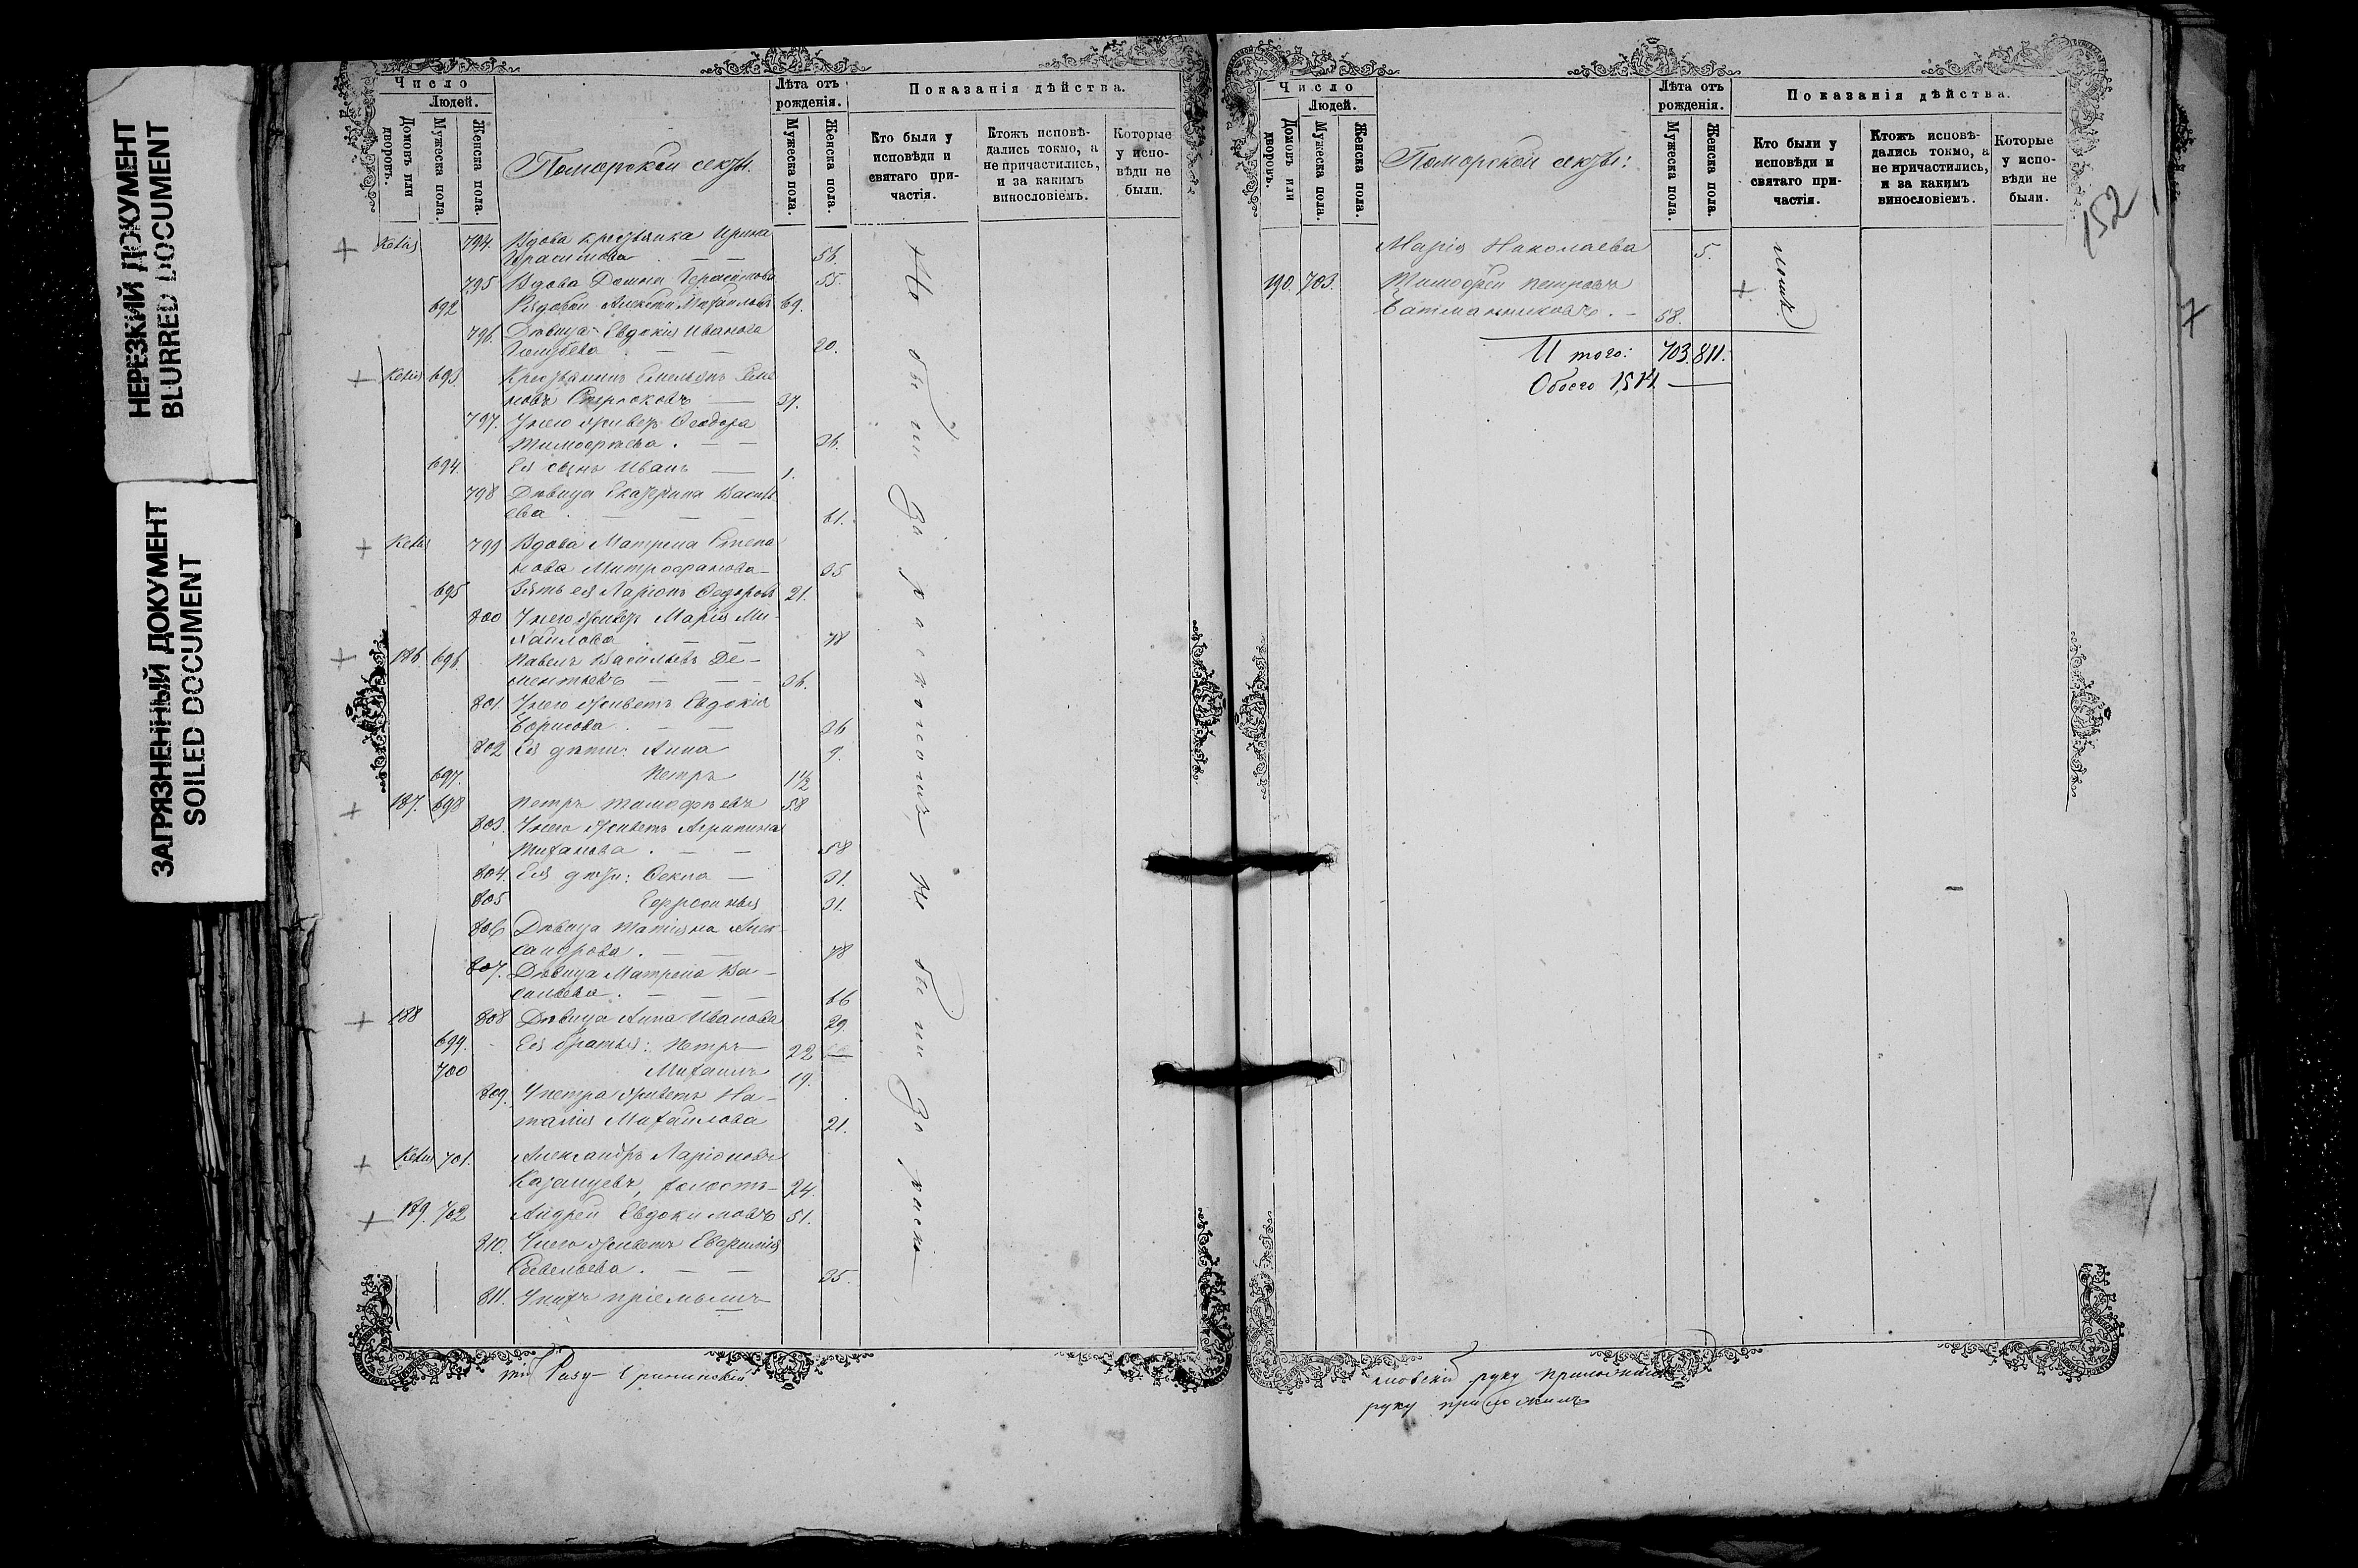 НЕРЕЗКИЙ ДОКУМЕНТ
BLURRED DOCUMENT
ЗАГРЯЗНЕННЫЙ ДОКУМЕНТ
SOILED DOCUMENT
Число
Людей.
Домовъ или дворовъ.
Мужеска пола.
Женска пола.
Поморской секты.
Лѣта отъ рожденія.
Мужеска пола.
Женска пола.
Показанія дѣйства.
Кто были у исповѣди и святаго причастія.
Ктожъ исповѣдались токмо, а не причастились, и за какимъ винословіемъ.
Которые у исповѣди не были.
794. Вдова крестьянка Ирина
Герасимова 56.
795 Вдова Домна Герасимова 55.
692 Рядовой Алексѣй Михайловъ 69.
796. Дѣвица Евдокія Иванова
Голубева 20.
693. Крестьянинъ Емельянъ Семе
новъ 37.
797. У него живетъ Феодора
Тимофеева. 36.
694. Ея сынъ Иванъ 1.
798 Дѣвица Екатерина Василь
ева 61.
799 Вдова Матрена Степа
нова Митрофанова 35
695 Зять ея Ларіонъ Федоровъ 21.
800 У него живетъ Марія Ми-
хайлова 18
186. 696. Павелъ Васильевъ Де-
ментьевъ 36.
801. У него живетъ Евдокія
Борисова 36
802 Ея дѣти: Анна 9.
697. Петръ 1½
187. 698 Петръ Тимофѣевъ 58
803. У него живетъ Агрипина
58
804. Ея дѣти: Фекла 31.
805 31.
806 Дѣвица Татіяна Алек-
сандрова. 78
807. Дѣвица Матрена Ва-
сильева. 66
188 808 Дѣвица Анна Иванова 29.
699. Ея братья: Петръ 22
700 Михаилъ 19.
809. У Петра живетъ На-
талія Михайлова 21.
701. Александръ Ларіоновъ
Казанцевъ, холостъ 24.
189. 702 Андрей Евдокимовъ 51.
810. У него живетъ Евфимія
Савельева. 35.
811. У нихъ пріемышъ
Не были за расколомъ
Не были за раско
Число
Людей.
Домовъ или дворовъ.
Мужеска пола.
Женска пола.
Поморской секты:
Лѣта отъ рожденія.
Мужеска пола.
Женска пола.
Показанія дѣйства.
Кто были у исповѣди и святаго причастія.
Ктожъ исповѣдались токмо, а не причастились, и за какимъ винословіемъ.
Которые у исповѣди не были.
152
Марія Николаева 5.
190. 703. Тимофей Петровъ
58.
ломъ
Итого: 703. 811.
Обоего 1514
руку приложилъ
руку приложилъ